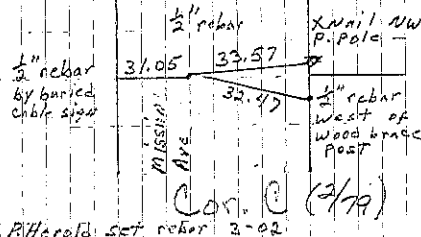 1/2" rebar
X Nail NW
P. Pole
1/2" rebar
by buried
cable sign
31.05
33.57
32.47
1/2" rebar
west of
wood brace
post
Mission
Ave
Cor. C (2/79)
P. Herold set rebar 3-02